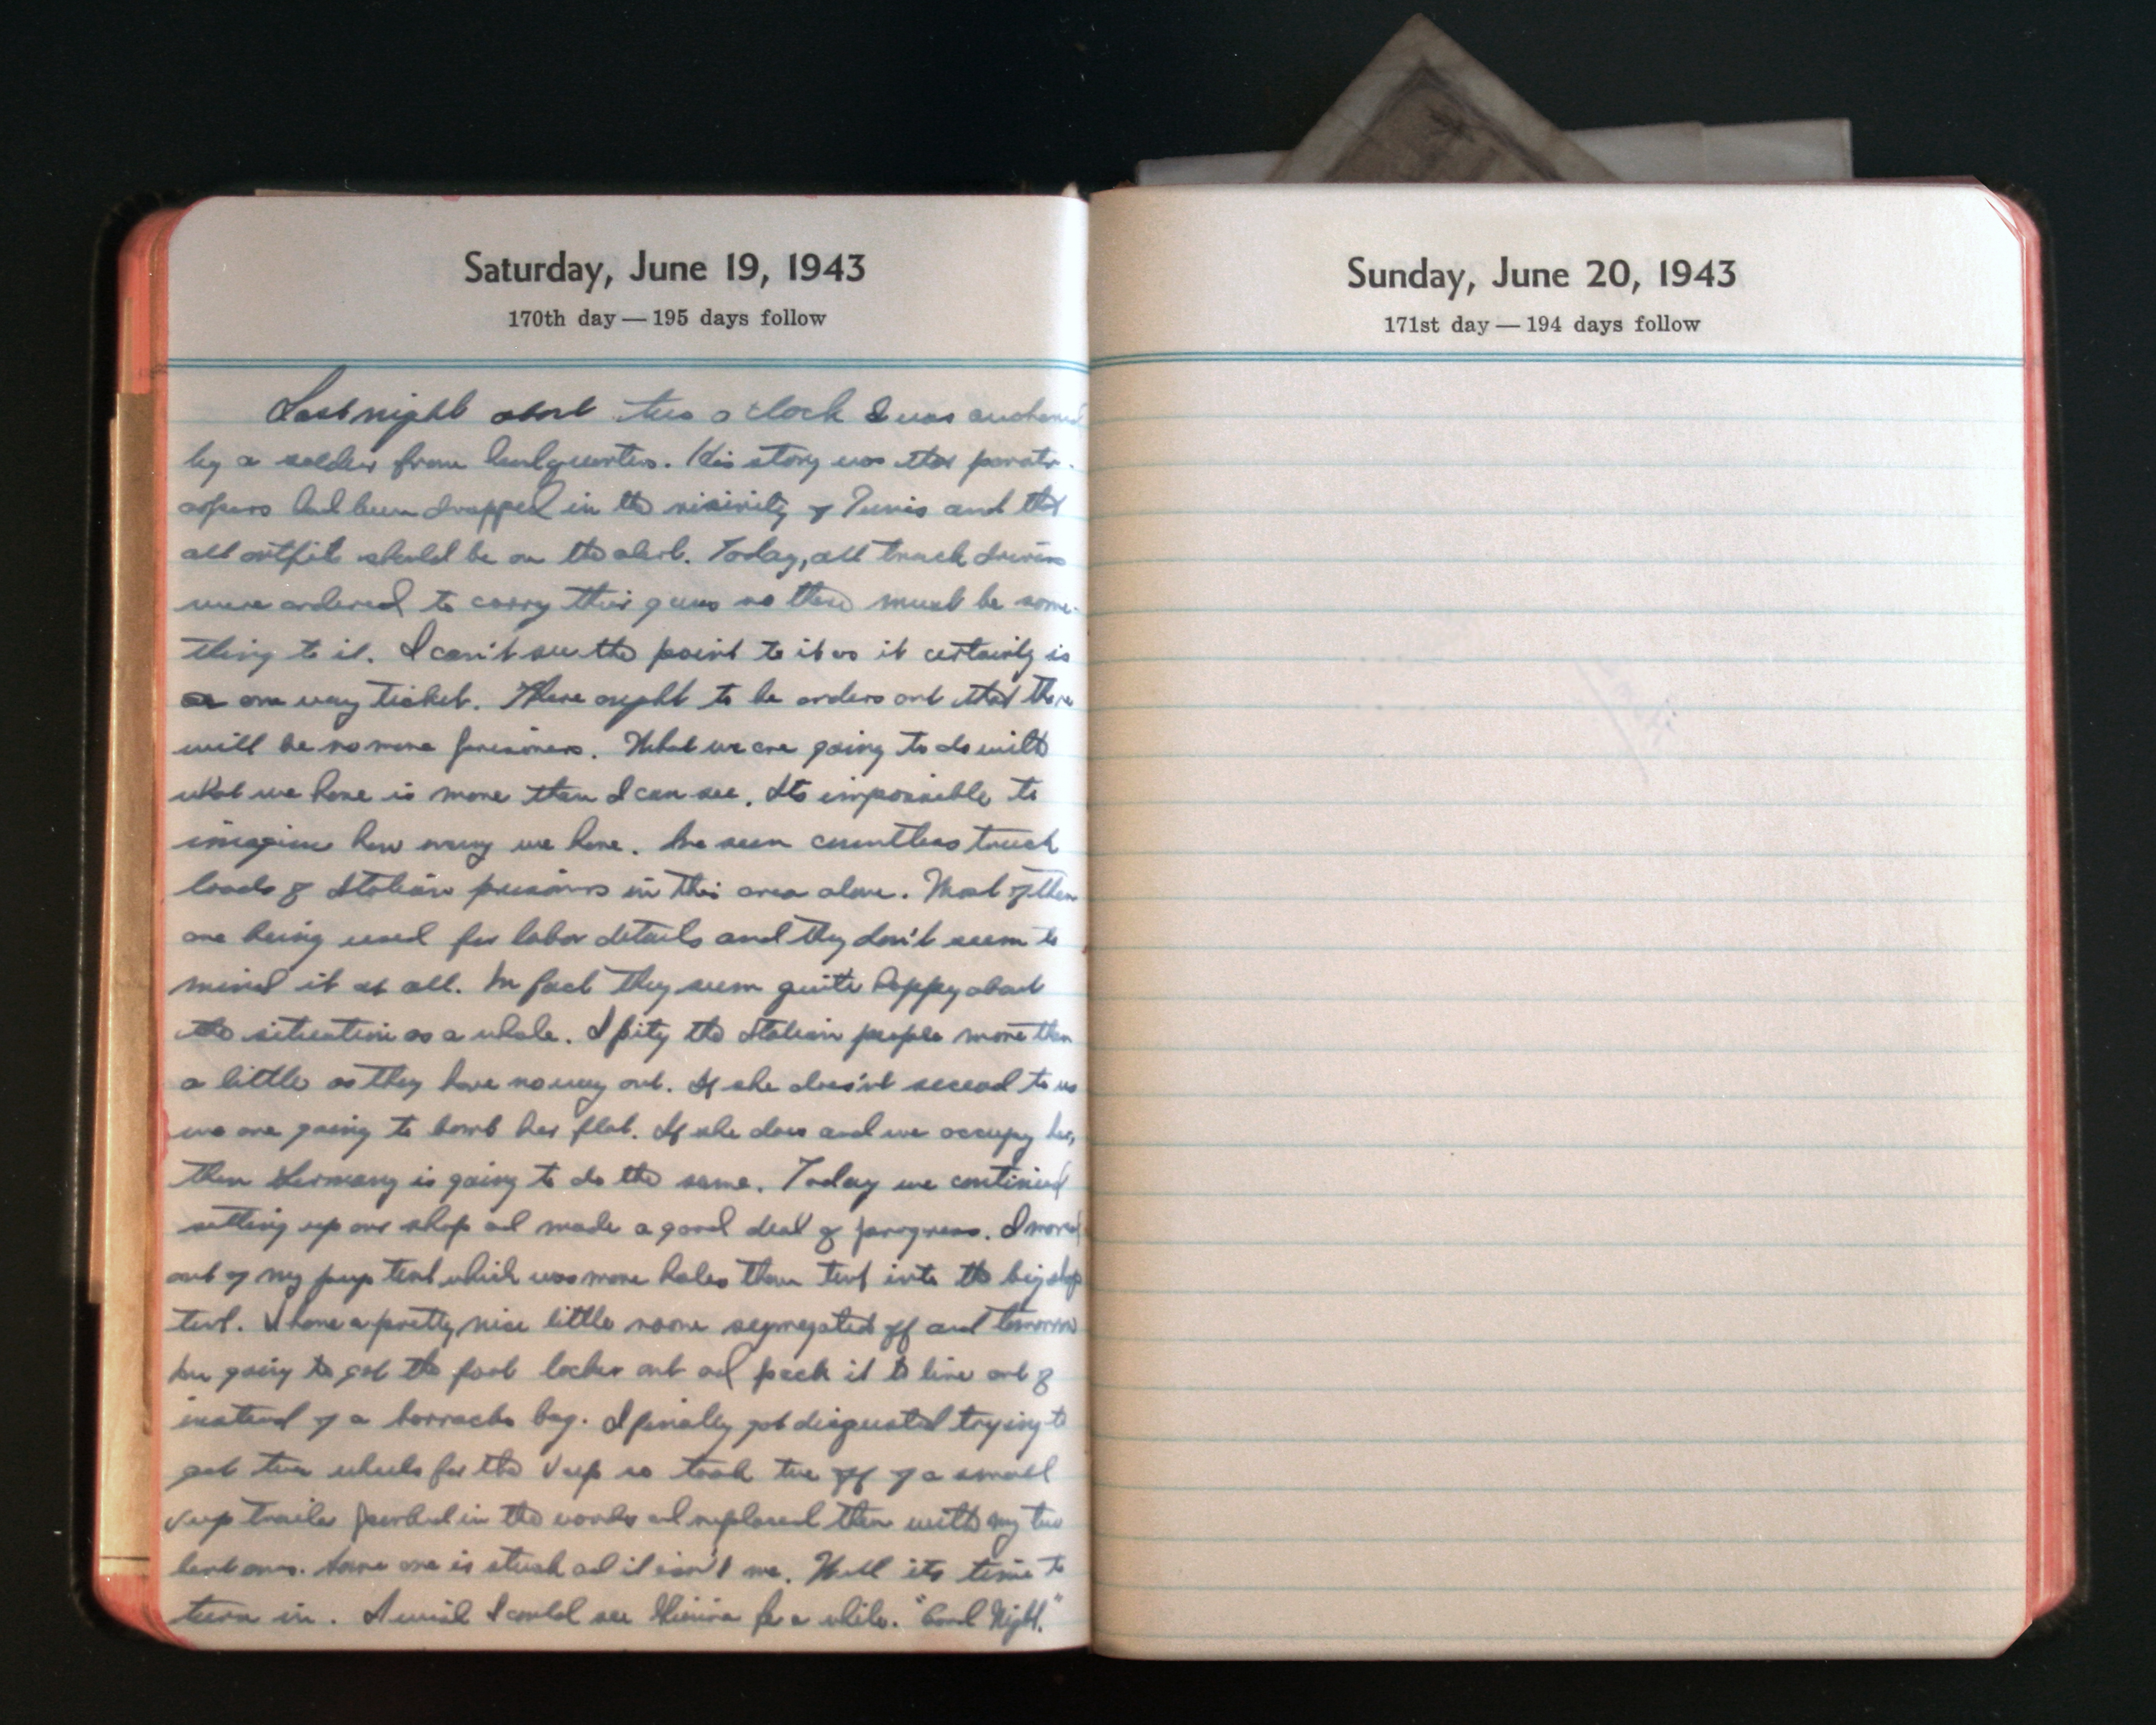 Saturday, June 19, 1943
170th day — 195 days follow
Last night about two o'clock I was awakened
by a soldier from headquarters. His story was that paratr-
oopers had been dropped in the vicinity of Tunis and that
all outfits should be on the alert. Today, all truck drivers
were ordered to carry their guns so there must be some-
thing to it. I can't see the point to it as it certainly is
one way ticket. There ought to be orders out that there
will be no more prisoners. What we are going to do with
what we have is more than I can see. Its impossible to
imagine how many we have. Ive seen countless truck
loads of Italian prisoners in this area alone. Most of them
are being used for labor details and they don't seem to
mind it at all. In fact they seem quite happy about
the situation as a whole. I pity the Italian people more than
a little as they have no way out. If she doesn't secead to us
we are going to bomb her flat. If she does and we occupy her,
then Germany is going to do the same. Today we continued
setting up our shop and made a good deal of progress. I moved
out of my pup tent which was more holes than tent into the big shop
tent. I have a pretty nice little room segregated off and tomorrow
Im going to get the foot locker out and pack it to live out of
instead of a barracks bag. I finally got disgusted trying to
get two wheels for the Jeep so took two off of a small
Jeep trailer parked in the woods and replaced them with my two
bent ones. Some one is stuck and it isn't me. Well its time to
turn in. I wish I could see for a while. "Good Night."
Sunday, June 20, 1943
171st day — 194 days follow